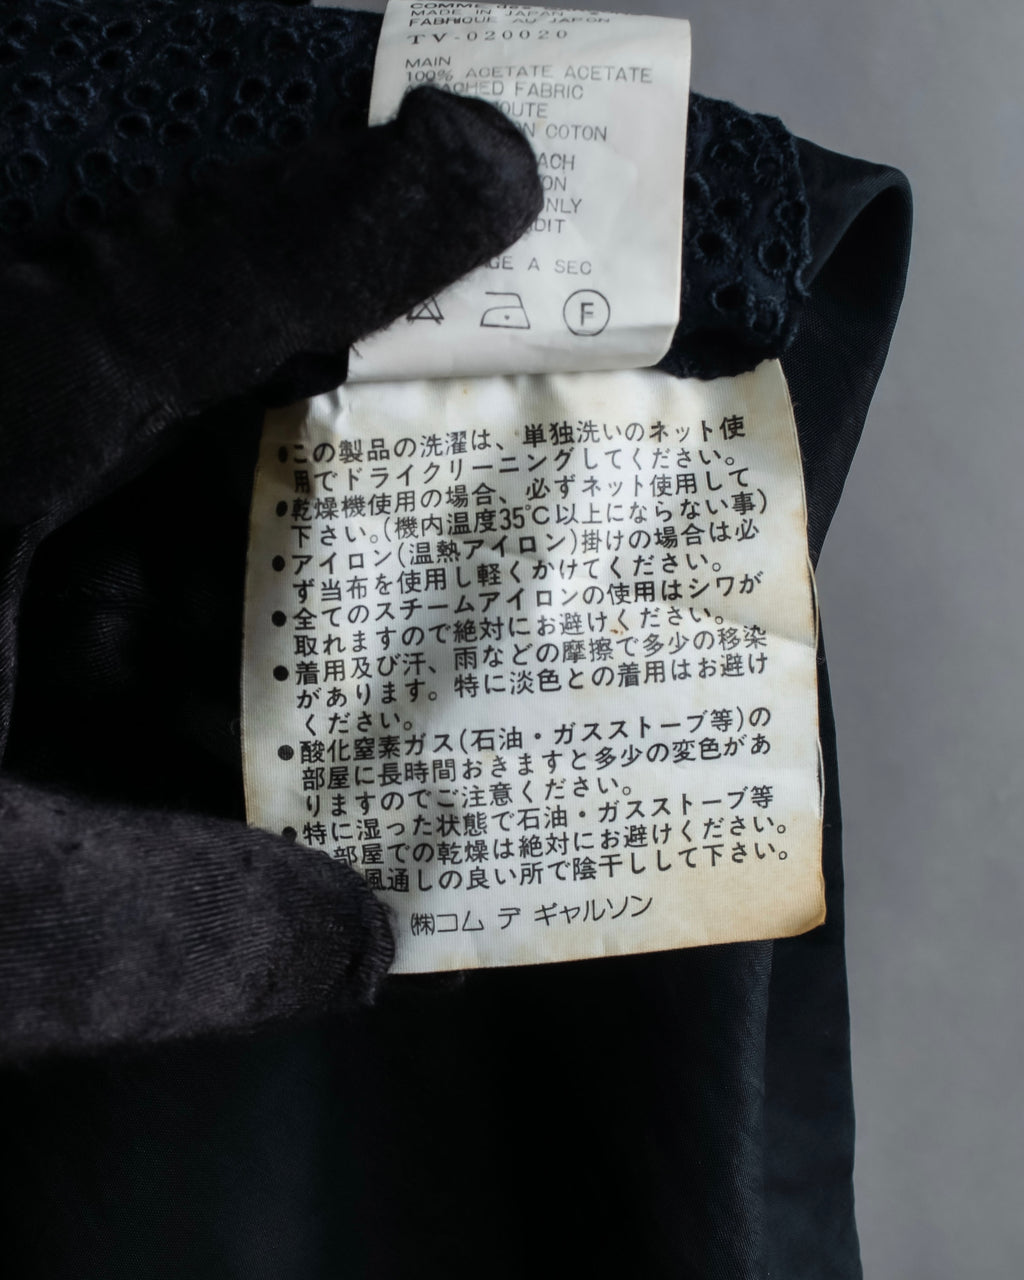 COMME des
MADE IN JAPAN
FABRIQUE AU JAPON
TV-020020
MAIN
100% ACETATE ACETATE
FABRIC
COTON
DRY ONLY
A SEC
F
●この製品の洗濯は、単独洗いのネット使
用でドライクリーニングしてください。
●乾燥機使用の場合、必ずネット使用して
下さい。(機内温度35℃以上にならない事)
●アイロン(温熱アイロン)掛けの場合は必
ず当布を使用し軽くかけてください。
●全てのスチームアイロンの使用はシワが
取れますので絶対にお避けください。
●着用及び汗、雨などの摩擦で多少の移染
があります。特に淡色との着用はお避け
ください。
●酸化窒素ガス(石油・ガスストーブ等)の
部屋に長時間おきますと多少の変色があ
りますのでご注意ください。
●特に湿った状態で石油・ガスストーブ等
部屋での乾燥は絶対にお避けください。
風通しの良い所で陰干しして下さい。
㈱コム デ ギャルソン